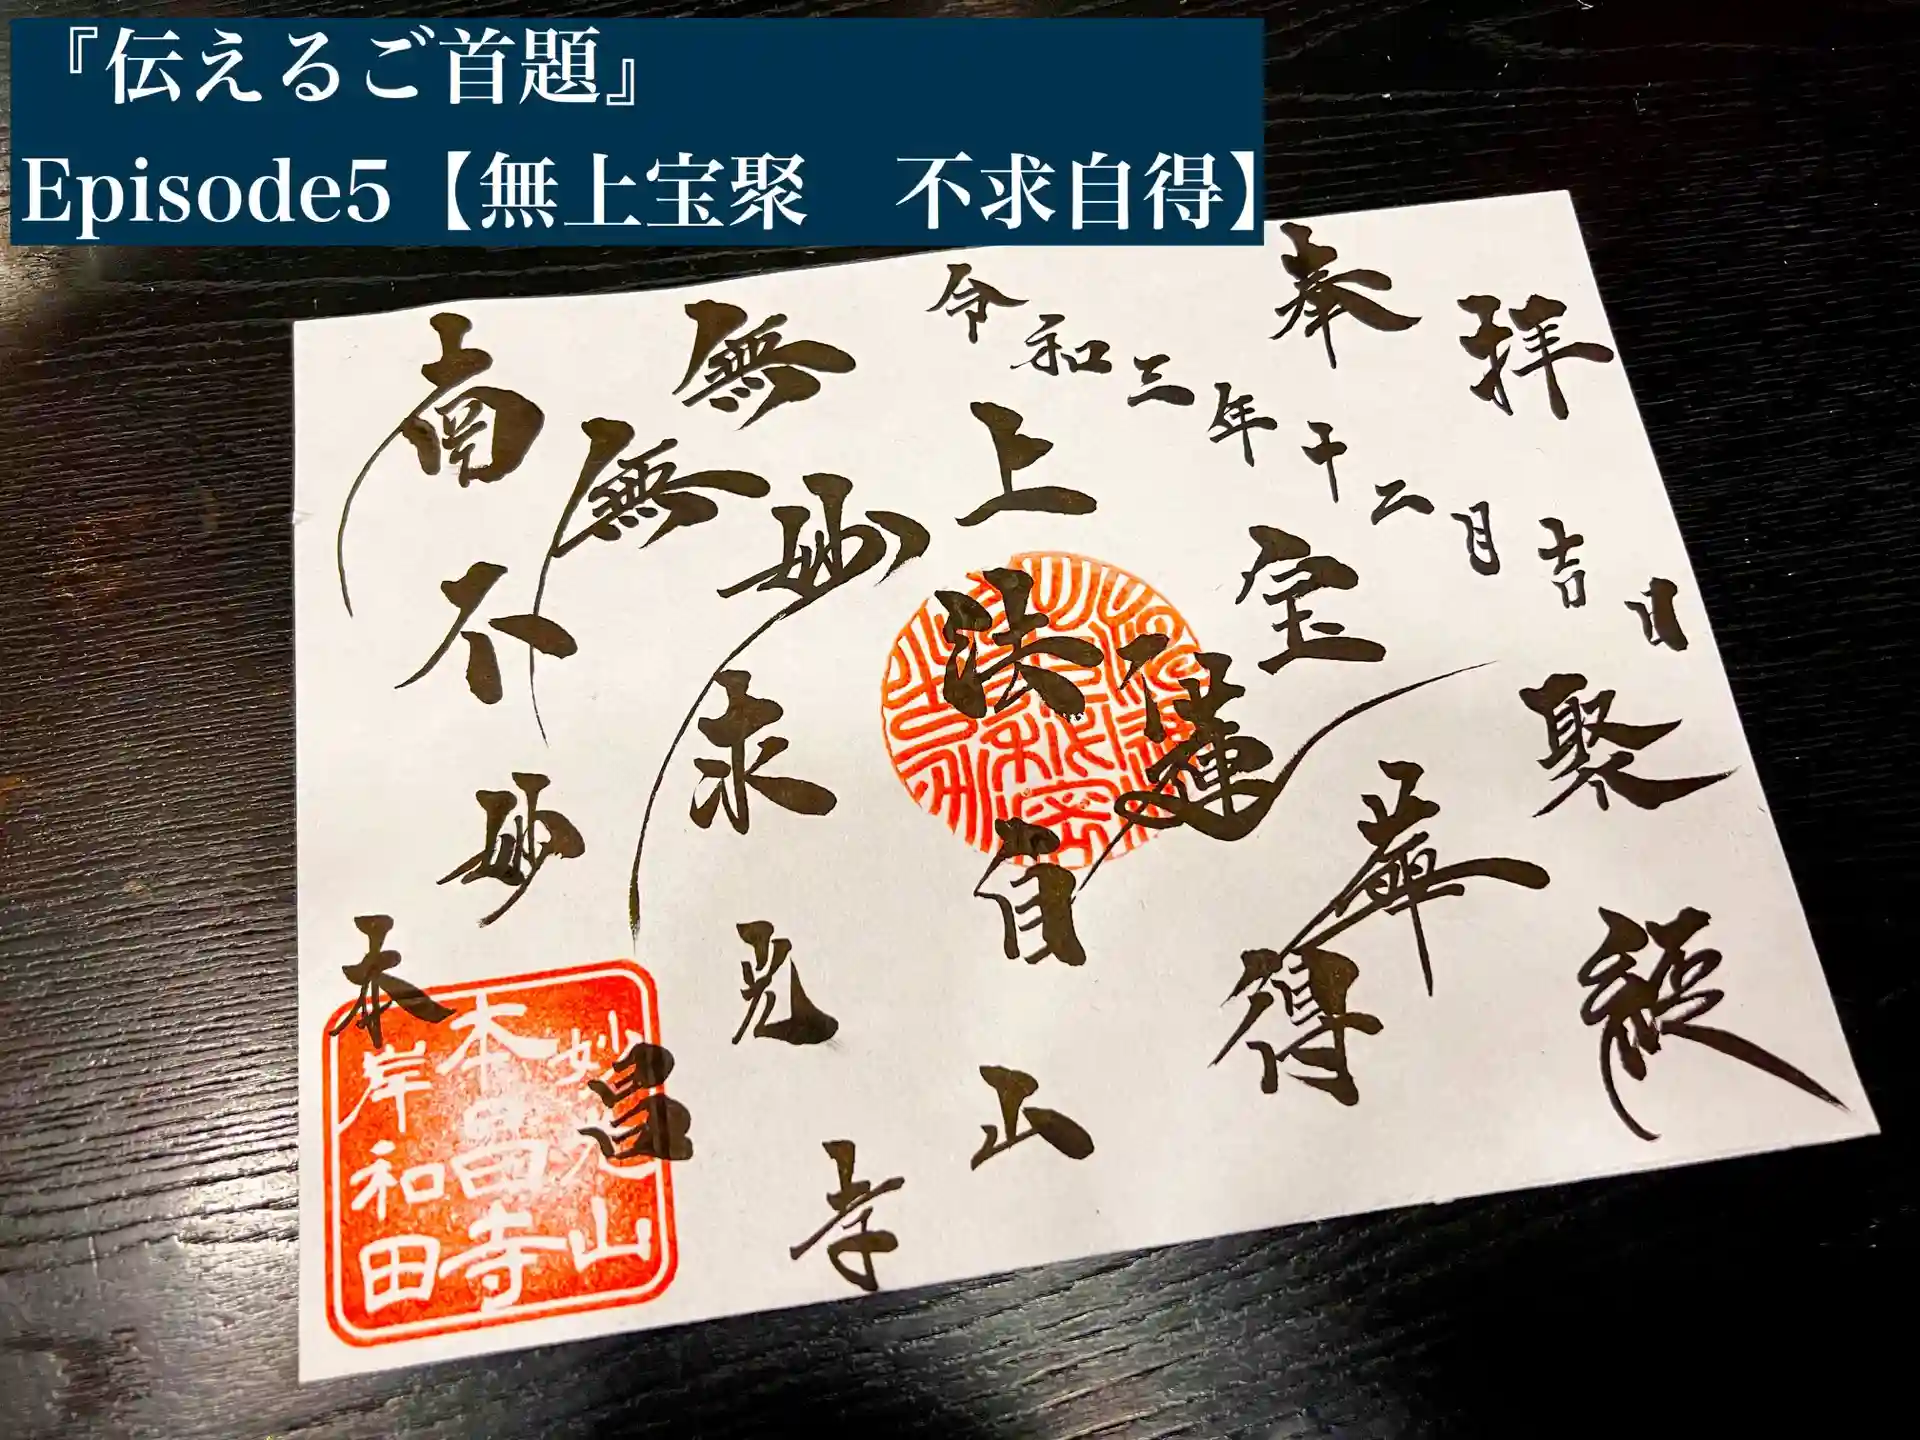 『伝えるご首題』
Episode5【無上宝聚　不求自得】
奉拝
令和三年十二月吉日
無上宝聚
南無妙法蓮華経
不求自得
妙見山
本昌寺
妙見山
本昌寺
岸和田